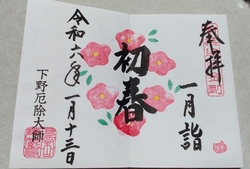 奉拝
一月詣
初春
令和六年一月十三日
下野厄除大師